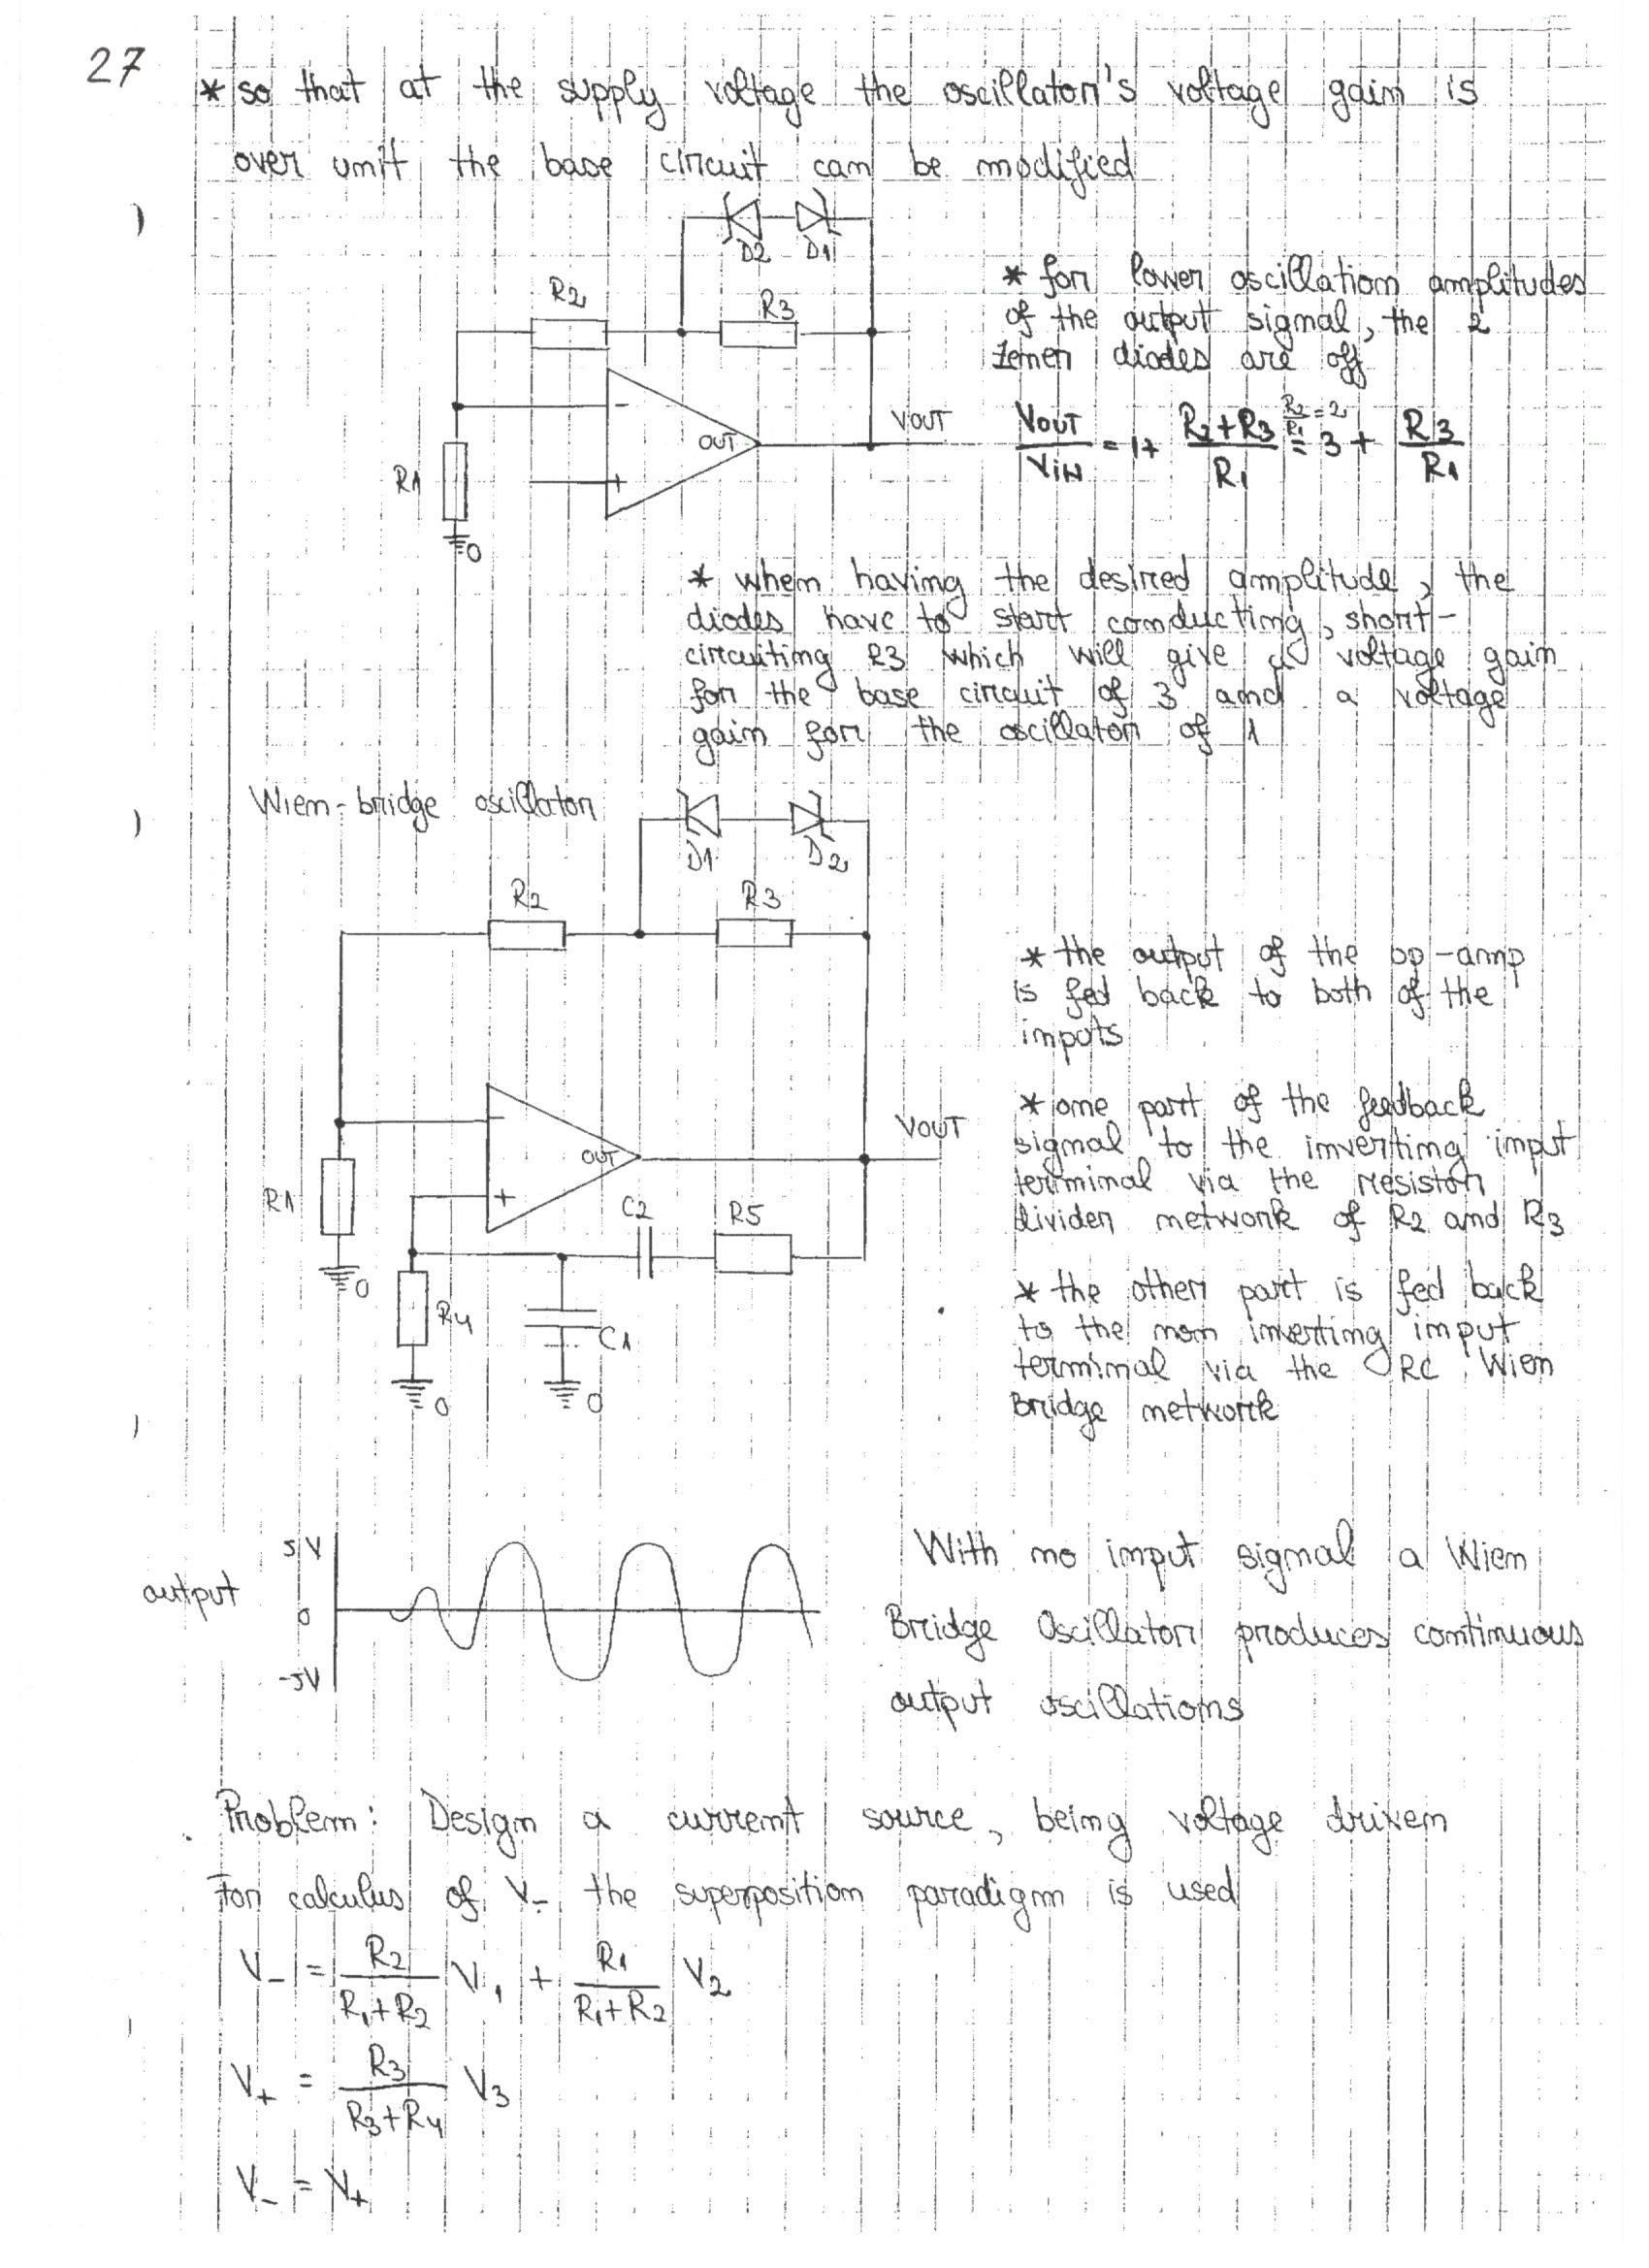 27
* so that at the supply voltage the oscillator's voltage gain is
over unit the base circuit can be modified
D2 D1
R2 R3
- OUT VOUT
R1 +
0
* for lower oscillation amplitudes
of the output signal, the 2
zener diodes are off
VOUT/VIN = 1 + (R2+R3)/R1 = (R2/R1 = 2) 3 + R3/R1
* when having the desired amplitude, the
diodes have to start conducting, short-
circuiting R3 which will give a voltage gain
for the base circuit of 3 and a voltage
gain for the oscillator of 1
Wien-bridge oscillator
D1 D2
R2 R3
- OUT VOUT
R1 +
C2 R5
0
R4 C1
0 0
* the output of the op-amp
is fed back to both of the
inputs
* one part of the feedback
signal to the inverting input
terminal via the resistor
divider network of R2 and R3
* the other part is fed back
to the non inverting input
terminal via the RC Wien
Bridge network
5V
output 0
-5V
With no input signal a Wien
Bridge Oscillator produces continuous
output oscillations
Problem: Design a current source, being voltage driven
For calculus of V- the superposition paradigm is used
V- = R2/(R1+R2) V1 + R1/(R1+R2) V2
V+ = R3/(R3+R4) V3
V- = V+